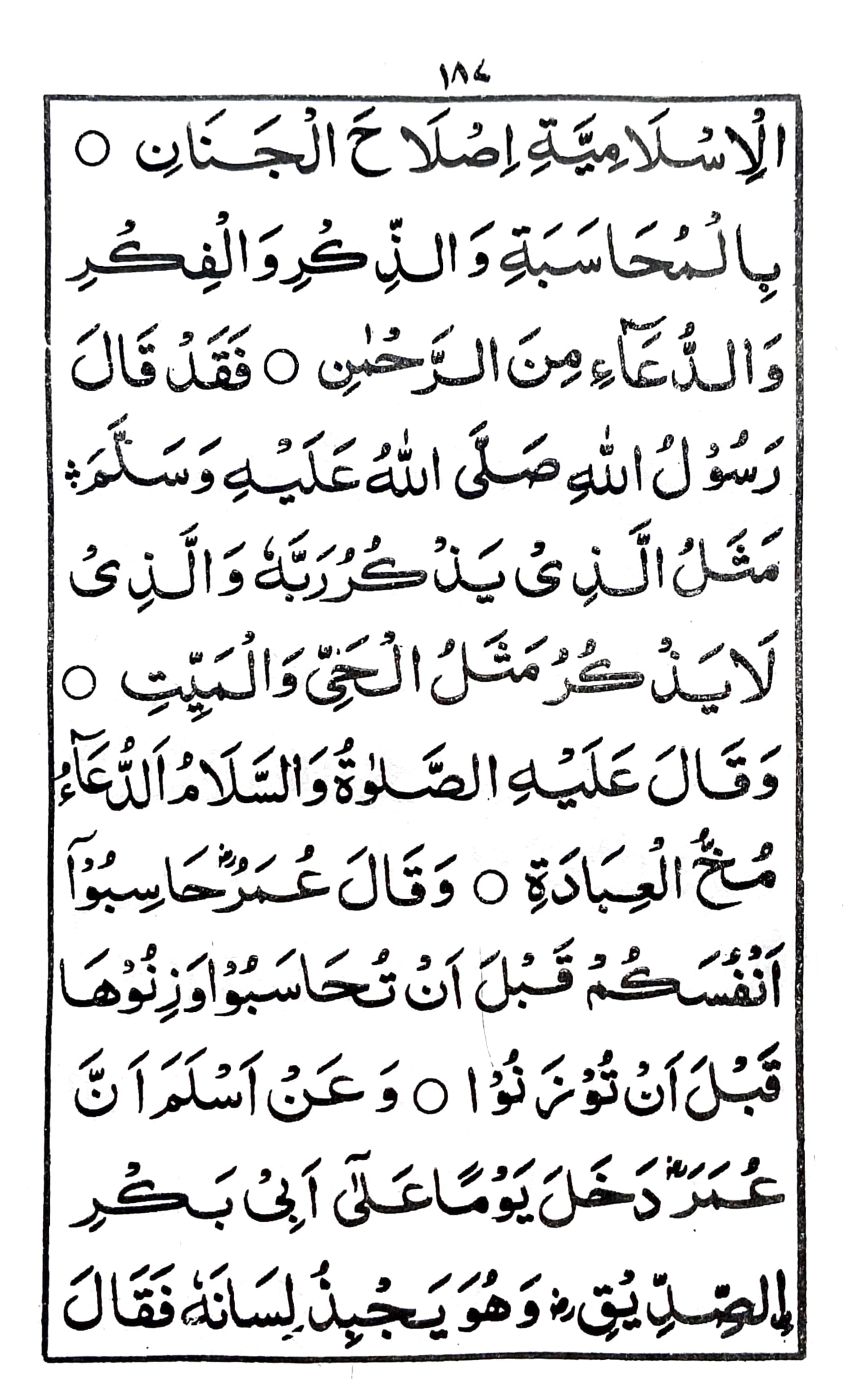 ١٨٤
الْاِسْلَامِيَّةِ اِصْلَاحَ الْجَنَانِ ○
بِالْمُحَاسَبَةِ وَالذِّكْرِ وَالْفِكْرِ
وَالدُّعَآءِ مِنَ الرَّحْمٰنِ ○ فَقَدْ قَالَ
رَسُوْلُ اللهِ صَلَّى اللهُ عَلَيْهِ وَسَلَّمَ
مَثَلُ الَّذِىْ يَذْكُرُ رَبَّهٗ وَالَّذِىْ
لَا يَذْكُرُ مَثَلُ الْحَيِّ وَالْمَيِّتِ ○
وَقَالَ عَلَيْهِ الصَّلٰوةُ وَالسَّلَامُ اَلدُّعَآءُ
مُخُّ الْعِبَادَةِ ○ وَقَالَ عُمَرُؓ حَاسِبُوْآ
اَنْفُسَكُمْ قَبْلَ اَنْ تُحَاسَبُوْا وَزِنُوْهَا
قَبْلَ اَنْ تُوْزَنُوْا ○ وَعَنْ اَسْلَمَ اَنَّ
عُمَرَؓ دَخَلَ يَوْمًا عَلٰٓى اَبِىْ بَكْرِ
اِلصِّدِّيْقِؓ وَهُوَ يَجْبِذُ لِسَانَهٗ فَقَالَ